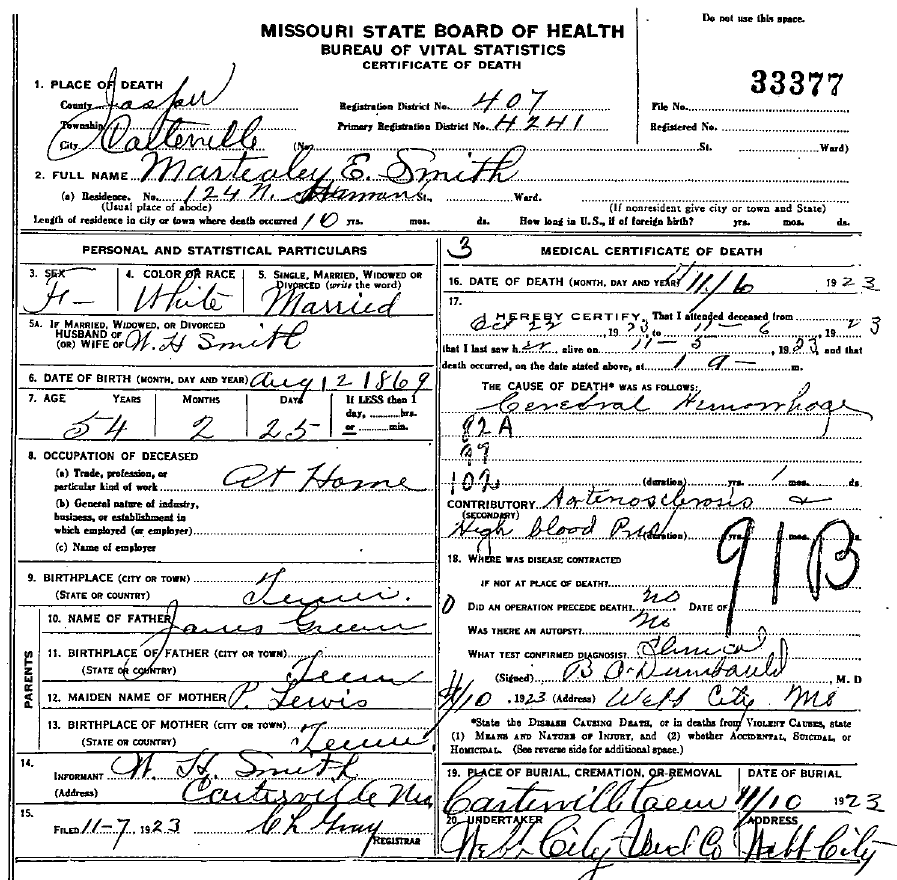 Do not use this space.
MISSOURI STATE BOARD OF HEALTH
BUREAU OF VITAL STATISTICS
CERTIFICATE OF DEATH
33377
1. PLACE OF DEATH
County Jasper Registration District No. 407 File No.
Township Primary Registration District No. 4241 Registered No.
City Carterville (No. St. Ward)
2. FULL NAME Martealey E. Smith
(a) Residence. No. 124 N. St., Ward.
(Usual place of abode) (If nonresident give city or town and State)
Length of residence in city or town where death occurred 10 yrs. mos. ds. How long in U.S., if of foreign birth? yrs. mos. ds.
PERSONAL AND STATISTICAL PARTICULARS
3. SEX 4. COLOR OR RACE 5. SINGLE, MARRIED, WIDOWED OR DIVORCED (write the word)
F- White Married
5A. IF MARRIED, WIDOWED, OR DIVORCED
HUSBAND OF
(OR) WIFE OF W. H Smith
6. DATE OF BIRTH (MONTH, DAY AND YEAR) Aug 12 1869
7. AGE YEARS MONTHS DAYS If LESS than 1 day, hrs. or min.
54 2 25
8. OCCUPATION OF DECEASED
(a) Trade, profession, or particular kind of work At Home
(b) General nature of industry, business, or establishment in which employed (or employer)
(c) Name of employer
9. BIRTHPLACE (CITY OR TOWN)
(STATE OR COUNTRY) Tenn.
PARENTS
10. NAME OF FATHER James Green
11. BIRTHPLACE OF FATHER (CITY OR TOWN)
(STATE OR COUNTRY) Tenn
12. MAIDEN NAME OF MOTHER P. Lewis
13. BIRTHPLACE OF MOTHER (CITY OR TOWN)
(STATE OR COUNTRY) Tenn.
14. INFORMANT W. H. Smith
(Address) Carterville Mo
15. FILED 11-7 1923 C L Gray REGISTRAR
3 MEDICAL CERTIFICATE OF DEATH
16. DATE OF DEATH (MONTH, DAY AND YEAR) 11/6 1923
17. I HEREBY CERTIFY, That I attended deceased from
Oct 22, 1923 to 11-6, 1923
that I last saw her alive on 11-5, 1923, and that
death occurred, on the date stated above, at 1 a- m.
THE CAUSE OF DEATH* WAS AS FOLLOWS:
Cerebral Hemorrhage
82A
99
102 (duration) yrs. mos. ds.
CONTRIBUTORY Arterosclerosis &
(SECONDARY)
High blood Pres (duration) yrs. mos. ds.
91B
18. WHERE WAS DISEASE CONTRACTED
IF NOT AT PLACE OF DEATH?
0 DID AN OPERATION PRECEDE DEATH? no DATE OF
WAS THERE AN AUTOPSY? no
WHAT TEST CONFIRMED DIAGNOSIS?
(Signed) B A Dumbauld, M. D
11/10, 1923 (Address) Webb City Mo
*State the DISEASE CAUSING DEATH, or in deaths from VIOLENT CAUSES, state
(1) MEANS AND NATURE OF INJURY, and (2) whether ACCIDENTAL, SUICIDAL, or
HOMICIDAL. (See reverse side for additional space.)
19. PLACE OF BURIAL, CREMATION, OR REMOVAL DATE OF BURIAL
Carterville Cem 11/10 1923
20. UNDERTAKER ADDRESS
Webb City Und Co Webb City